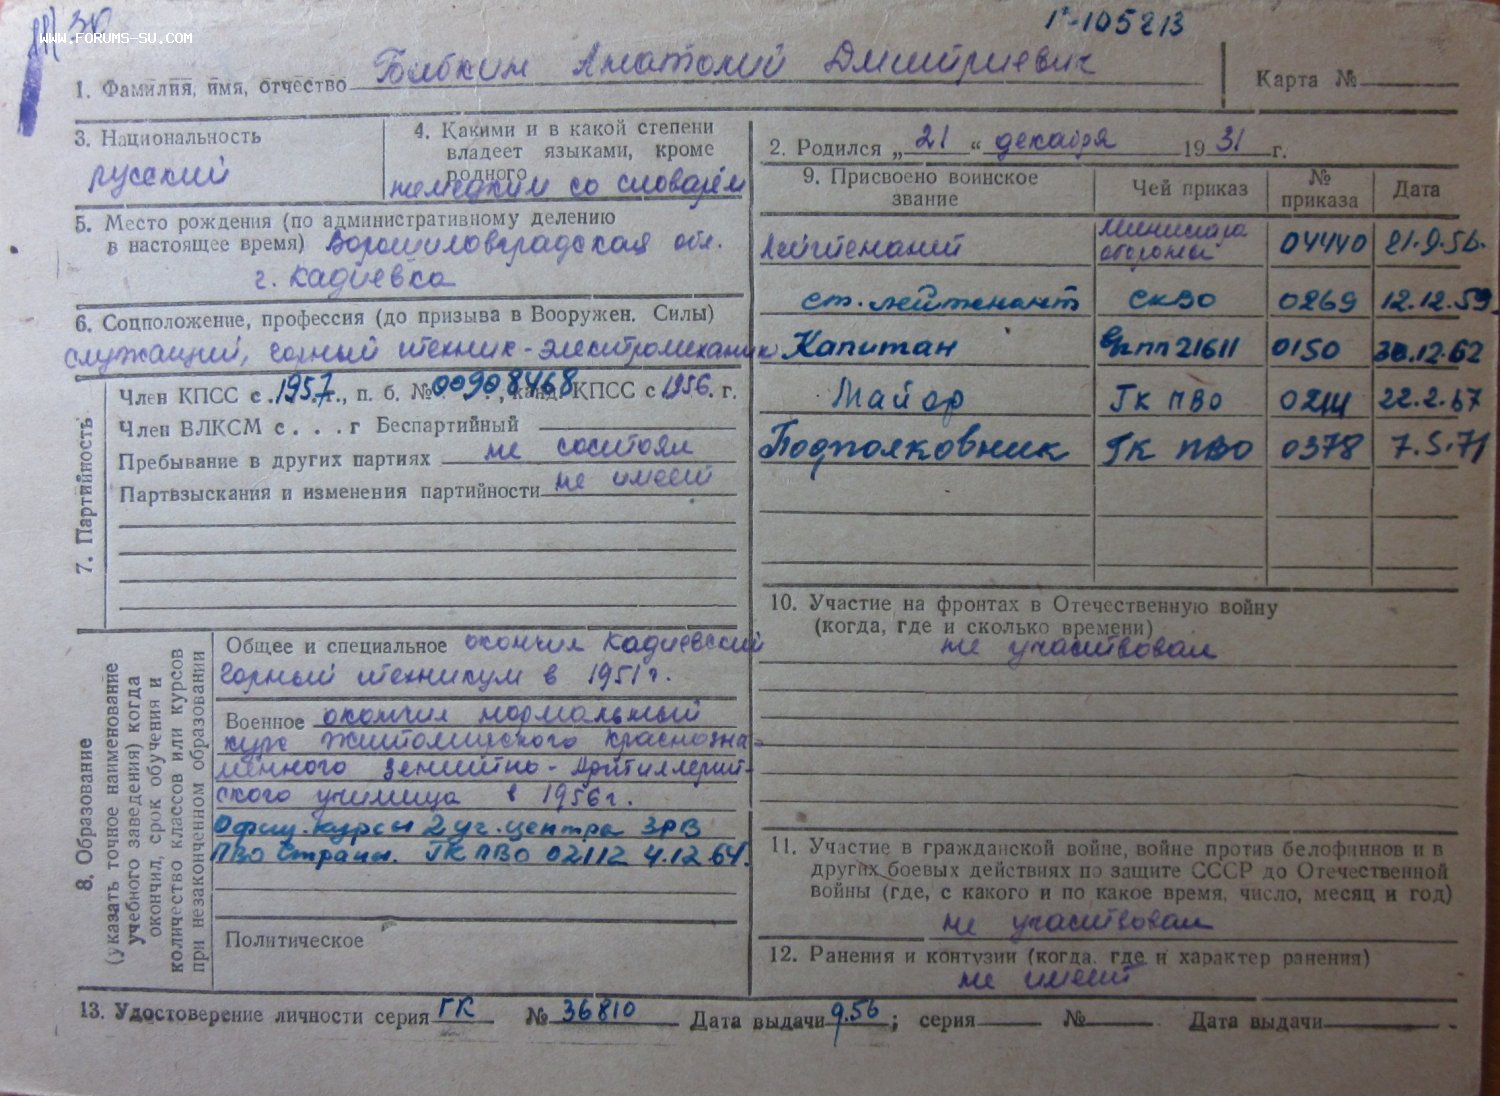 WWW.FORUMS-SU.COM
Г-105213
1. Фамилия, имя, отчество Бабкин Анатолий Дмитриевич
Карта №
3. Национальность
русский
4. Какими и в какой степени
владеет языками, кроме
родного
немецким со словарём
2. Родился „ 21 “ декабря 19 31 г.
5. Место рождения (по административному делению
в настоящее время) Ворошиловградская обл.
г. Кадиевка
6. Соцположение, профессия (до призыва в Вооружен. Силы)
служащий, горный техник-электромеханик
7. Партийность
Член КПСС с 1957 г., п. б. № 00908468, канд. КПСС с 1956 г.
Член ВЛКСМ с . . . г Беспартийный
Пребывание в других партиях не состоял
Партвзыскания и изменения партийности не имеет
8. Образование
(указать точное наименование
учебного заведения) когда
окончил, срок обучения и
количество классов или курсов
при незаконченном образовании
Общее и специальное окончил Кадиевский
горный техникум в 1951 г.
Военное окончил нормальный
курс Житомирского Краснозна-
менного зенитно-Артиллерий-
ского училища в 1956 г.
Офиц. курсы 2 уч. центра ЗРВ
ПВО Страны. ГК ПВО 02112 4.12.64.
Политическое
9. Присвоено воинское звание Чей приказ № приказа Дата
Лейтенант Министра обороны 04440 21.9.56.
ст. лейтенант СКВО 0269 12.12.59.
Капитан 21611 0150 30.12.62
Майор ГК ПВО 22.2.67
Подполковник ГК ПВО 0378 7.5.71
10. Участие на фронтах в Отечественную войну
(когда, где и сколько времени)
не участвовал
11. Участие в гражданской войне, войне против белофиннов и в
других боевых действиях по защите СССР до Отечественной
войны (где, с какого и по какое время, число, месяц и год)
не участвовал
12. Ранения и контузии (когда, где и характер ранения)
не имеет
13. Удостоверение личности серия ГК № 36810 Дата выдачи 9.56; серия № Дата выдачи